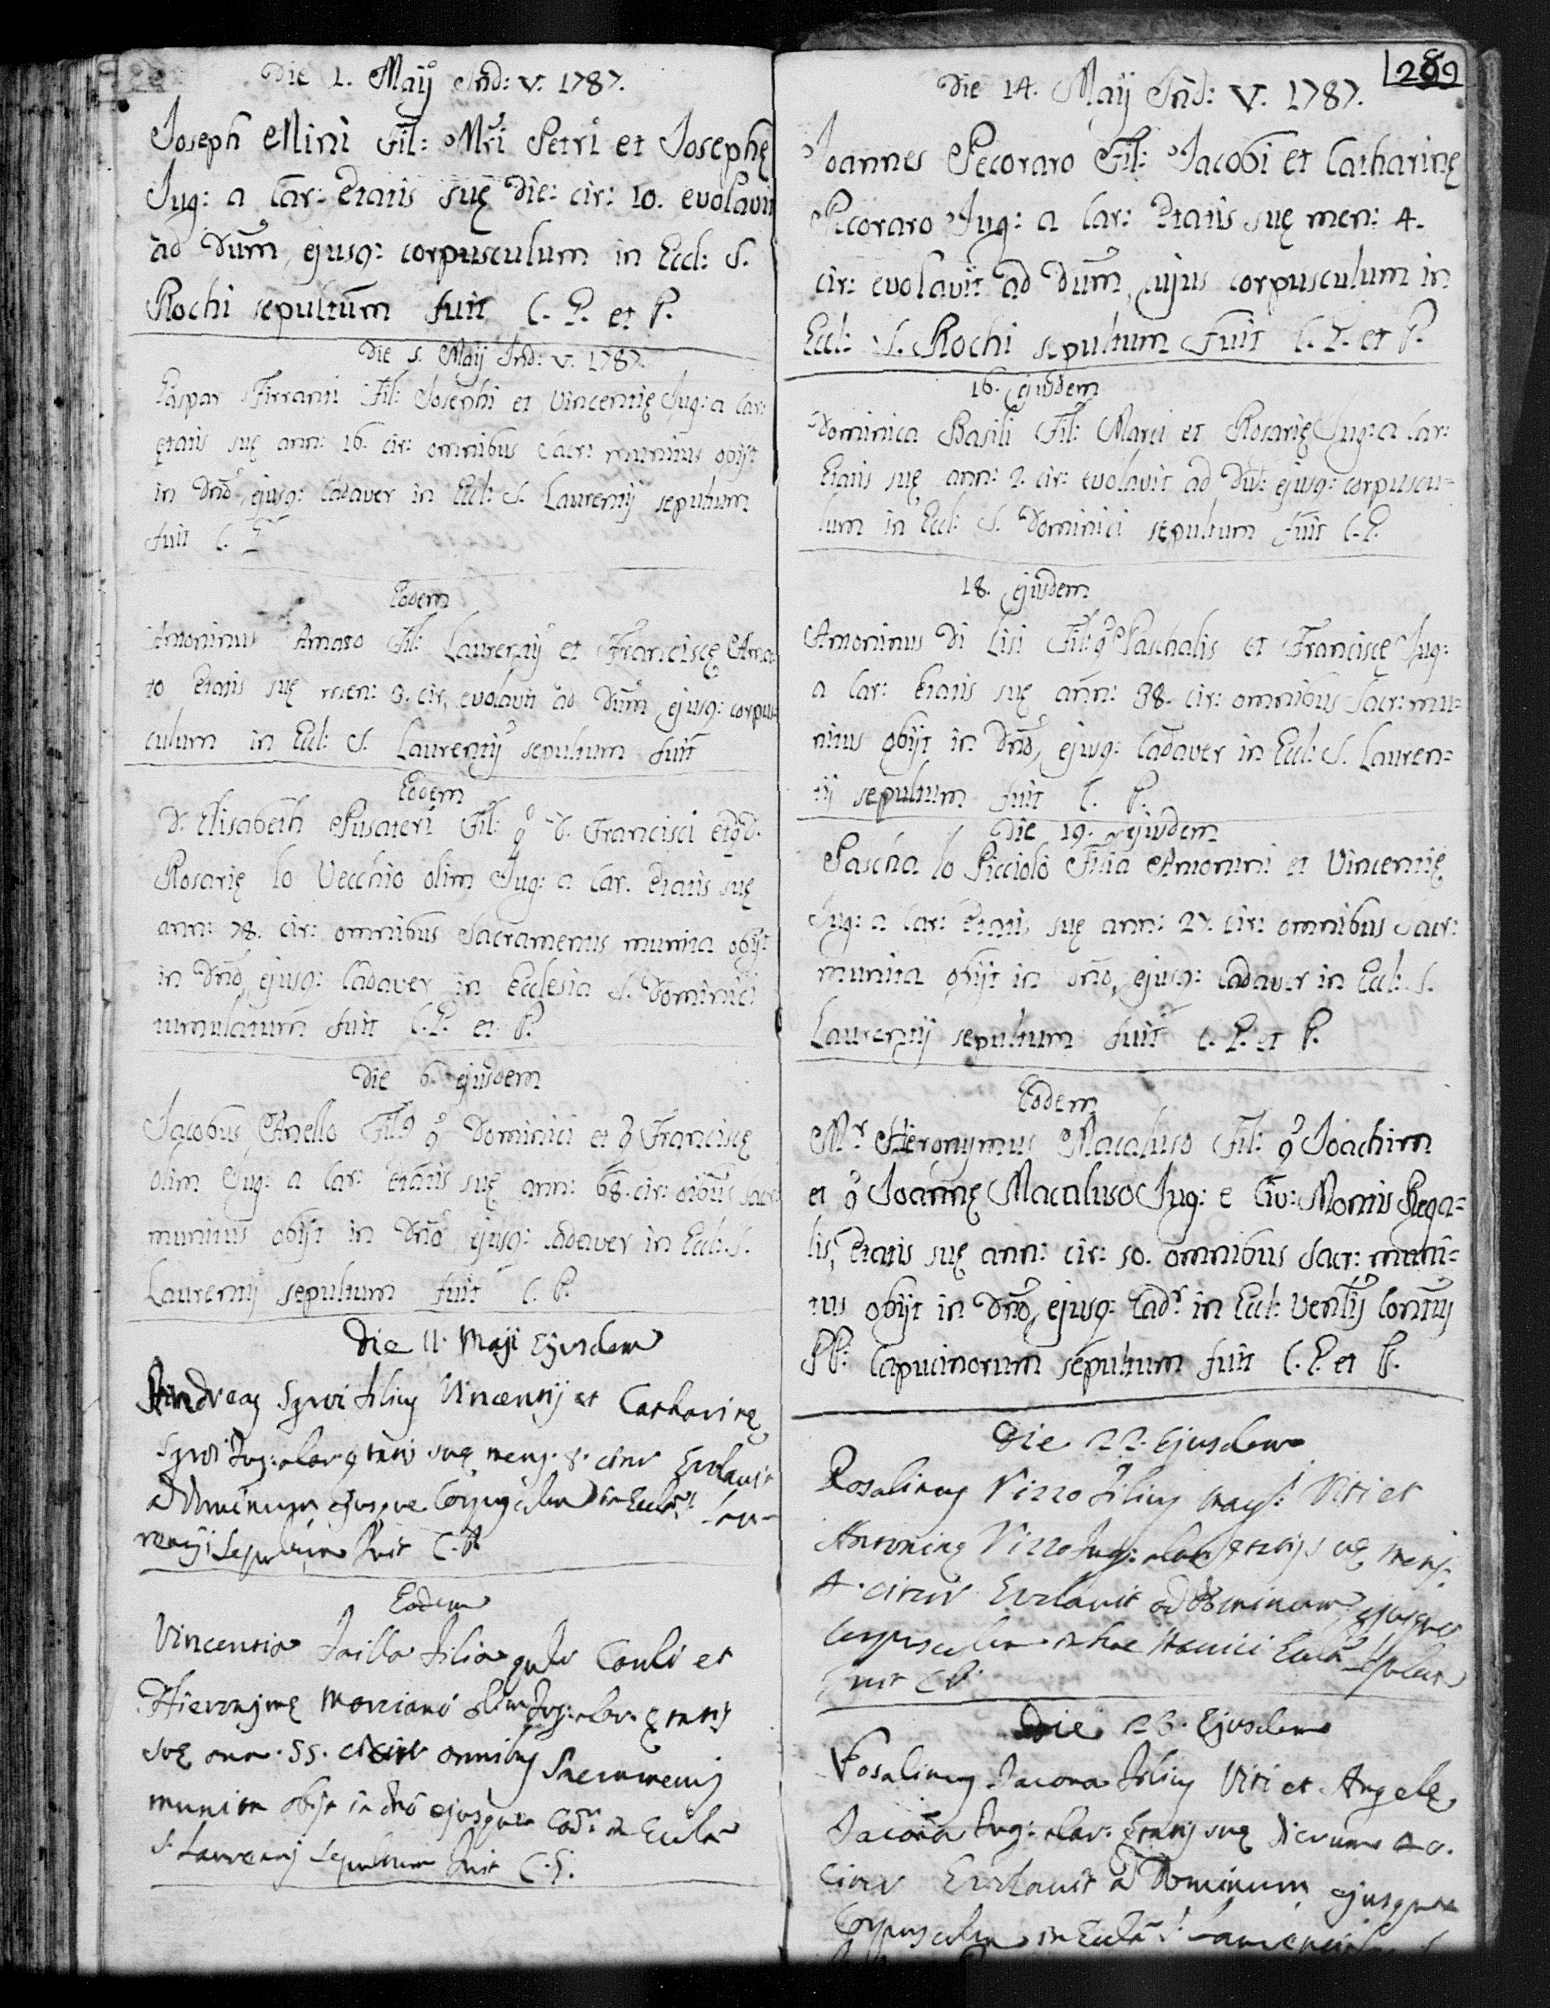 Die 1. Maij Ind: V. 1787.
Joseph Mini Fil: Mri Petri et Josephę
Jug: a Car: Etatis suę die: cir: 10. evolavit
ad Dum, ejusq: corpusculum in Eccl: S.
Rochi sepultum fuit C. P. et P.
Die 5. Maij Ind: V. 1787.
Gaspar Firranti Fil: Josephi et Vincentię Jug: a Car:
ętatis suę ann: 16. cir: omnibus Sacr: munitus obijt
in Dno, ejusq: Cadaver in Eccl: S. Laurentij sepultum
fuit C. P.
Eodem
Antoninus Amato Fil: Laurentij et Franciscę Ama-
to Etatis suę men: 3. cir, evolavit ad Dum, ejusq: corpus-
culum in Eccl: S. Laurentij sepultum fuit
Eodem
D. Elisabeth Pusateri Fil: q D. Francisci et q D.
Rosarię lo Vecchio olim Jug: a Car. Etatis suę
ann: 78. cir: omnibus Sacramentis munita obijt
in Dno, ejusq: Cadaver in Ecclesia S. Dominici
tumulatum fuit C. P. et P.
Die 6. ejusdem
Jacobus Anello Fil: q Dominici et q Franciscę
olim Jug: a Car: Etatis suę ann: 68. cir: oibus sacr:
munitus obijt in Dno ejusq: cadaver in Eccl: S.
Laurentij sepultum fuit C. P.
Die 11. Maji Ejusdem
Andreas Sgroi filius Vincentij et Catharinę
Sgroi Jug: a Car: ętatis suę mens. 8. circ Evolavit
ad Dominum ejusque Corpusculum in Eccla S. Lau-
rentij Sepultum Fuit C. P.
Eodem
Vincentia Failla Filia qdm Pauli et
Hieronjmę Marcianò olim Jug: a Car. ętatis
suę ann. 55. circ omnibus Sacramentis
munita obijt in Dno ejusque Cadr in Eccla
S. Laurentij Sepultum Fuit C. P.
289
Die 14. Maij Ind: V. 1787.
Joannes Pecoraro Fil: Jacobi et Catharinę
Pecoraro Jug: a Car: Etatis suę men: 4.
cir: evolavit ad Dum, cujus corpusculum in
Eccl: S. Rochi sepultum fuit C. P. et P.
16. ejusdem
Dominica Basili Fil: Marci et Rosarię Jug: a Car:
Etatis suę ann: 2. cir: evolavit ad Du: ejusq: corpuscu-
lum in Eccl: S. Dominici sepultum fuit C. P.
18. ejusdem
Antoninus di Lisi Fil: q Paschalis et Franciscę Jug:
a Car: Etatis suę ann: 38. cir: omnibus Sacr: mu-
nitus obijt in Dno, ejusq: Cadaver in Eccl: S. Lauren-
tij sepultum fuit C. P.
Die 19. ejusdem
Pascha lo Picciolo Filia Antonini et Vincentię
Jug: a Car: Etatis suę ann: 27. cir: omnibus Sacr:
munita obijt in Dno, ejusq: Cadaver in Eccl: S.
Laurentij sepultum fuit C. P. et P.
Eodem
Mr Hieronymus Macaluso Fil: q Joachim
et q Joannę Macaluso Jug: e Civ: Montis Rega-
lis, Etatis suę ann: cir: 50. omnibus Sacr: muni-
tus obijt in Dno, ejusq: Cadr in Eccl: Venlij Contus
PP: Capucinorum sepultum fuit C. P. et P.
Die 22. Ejusdem
Rosalinus Vizzo filius Mag: Viti et
Antoninę Vizzo Jug: a Car ętatis suę mens.
4. circiter Evolavit ad Dominum, ejusque
Corpusculum in hac Matrici Eccla Sepultum
Fuit C P.
Die 23. Ejusdem
Rosalinus Jacona Filius Viti et Angelę
Jacona Jug: a Car: Etatis suę dierum 40.
Circ Evolavit ad Dominum ejusque
Corpusculum in Eccla S.